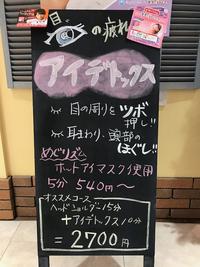 目の疲れ
アイデトックス
目の周りをツボ
押し!!
耳まわり、頭部の
ほぐし!!
めぐリズム
ホットアイマスク使用
5分 540円〜
オススメコース
ヘッドショルダー15分
+アイデトックス10分
=2700円